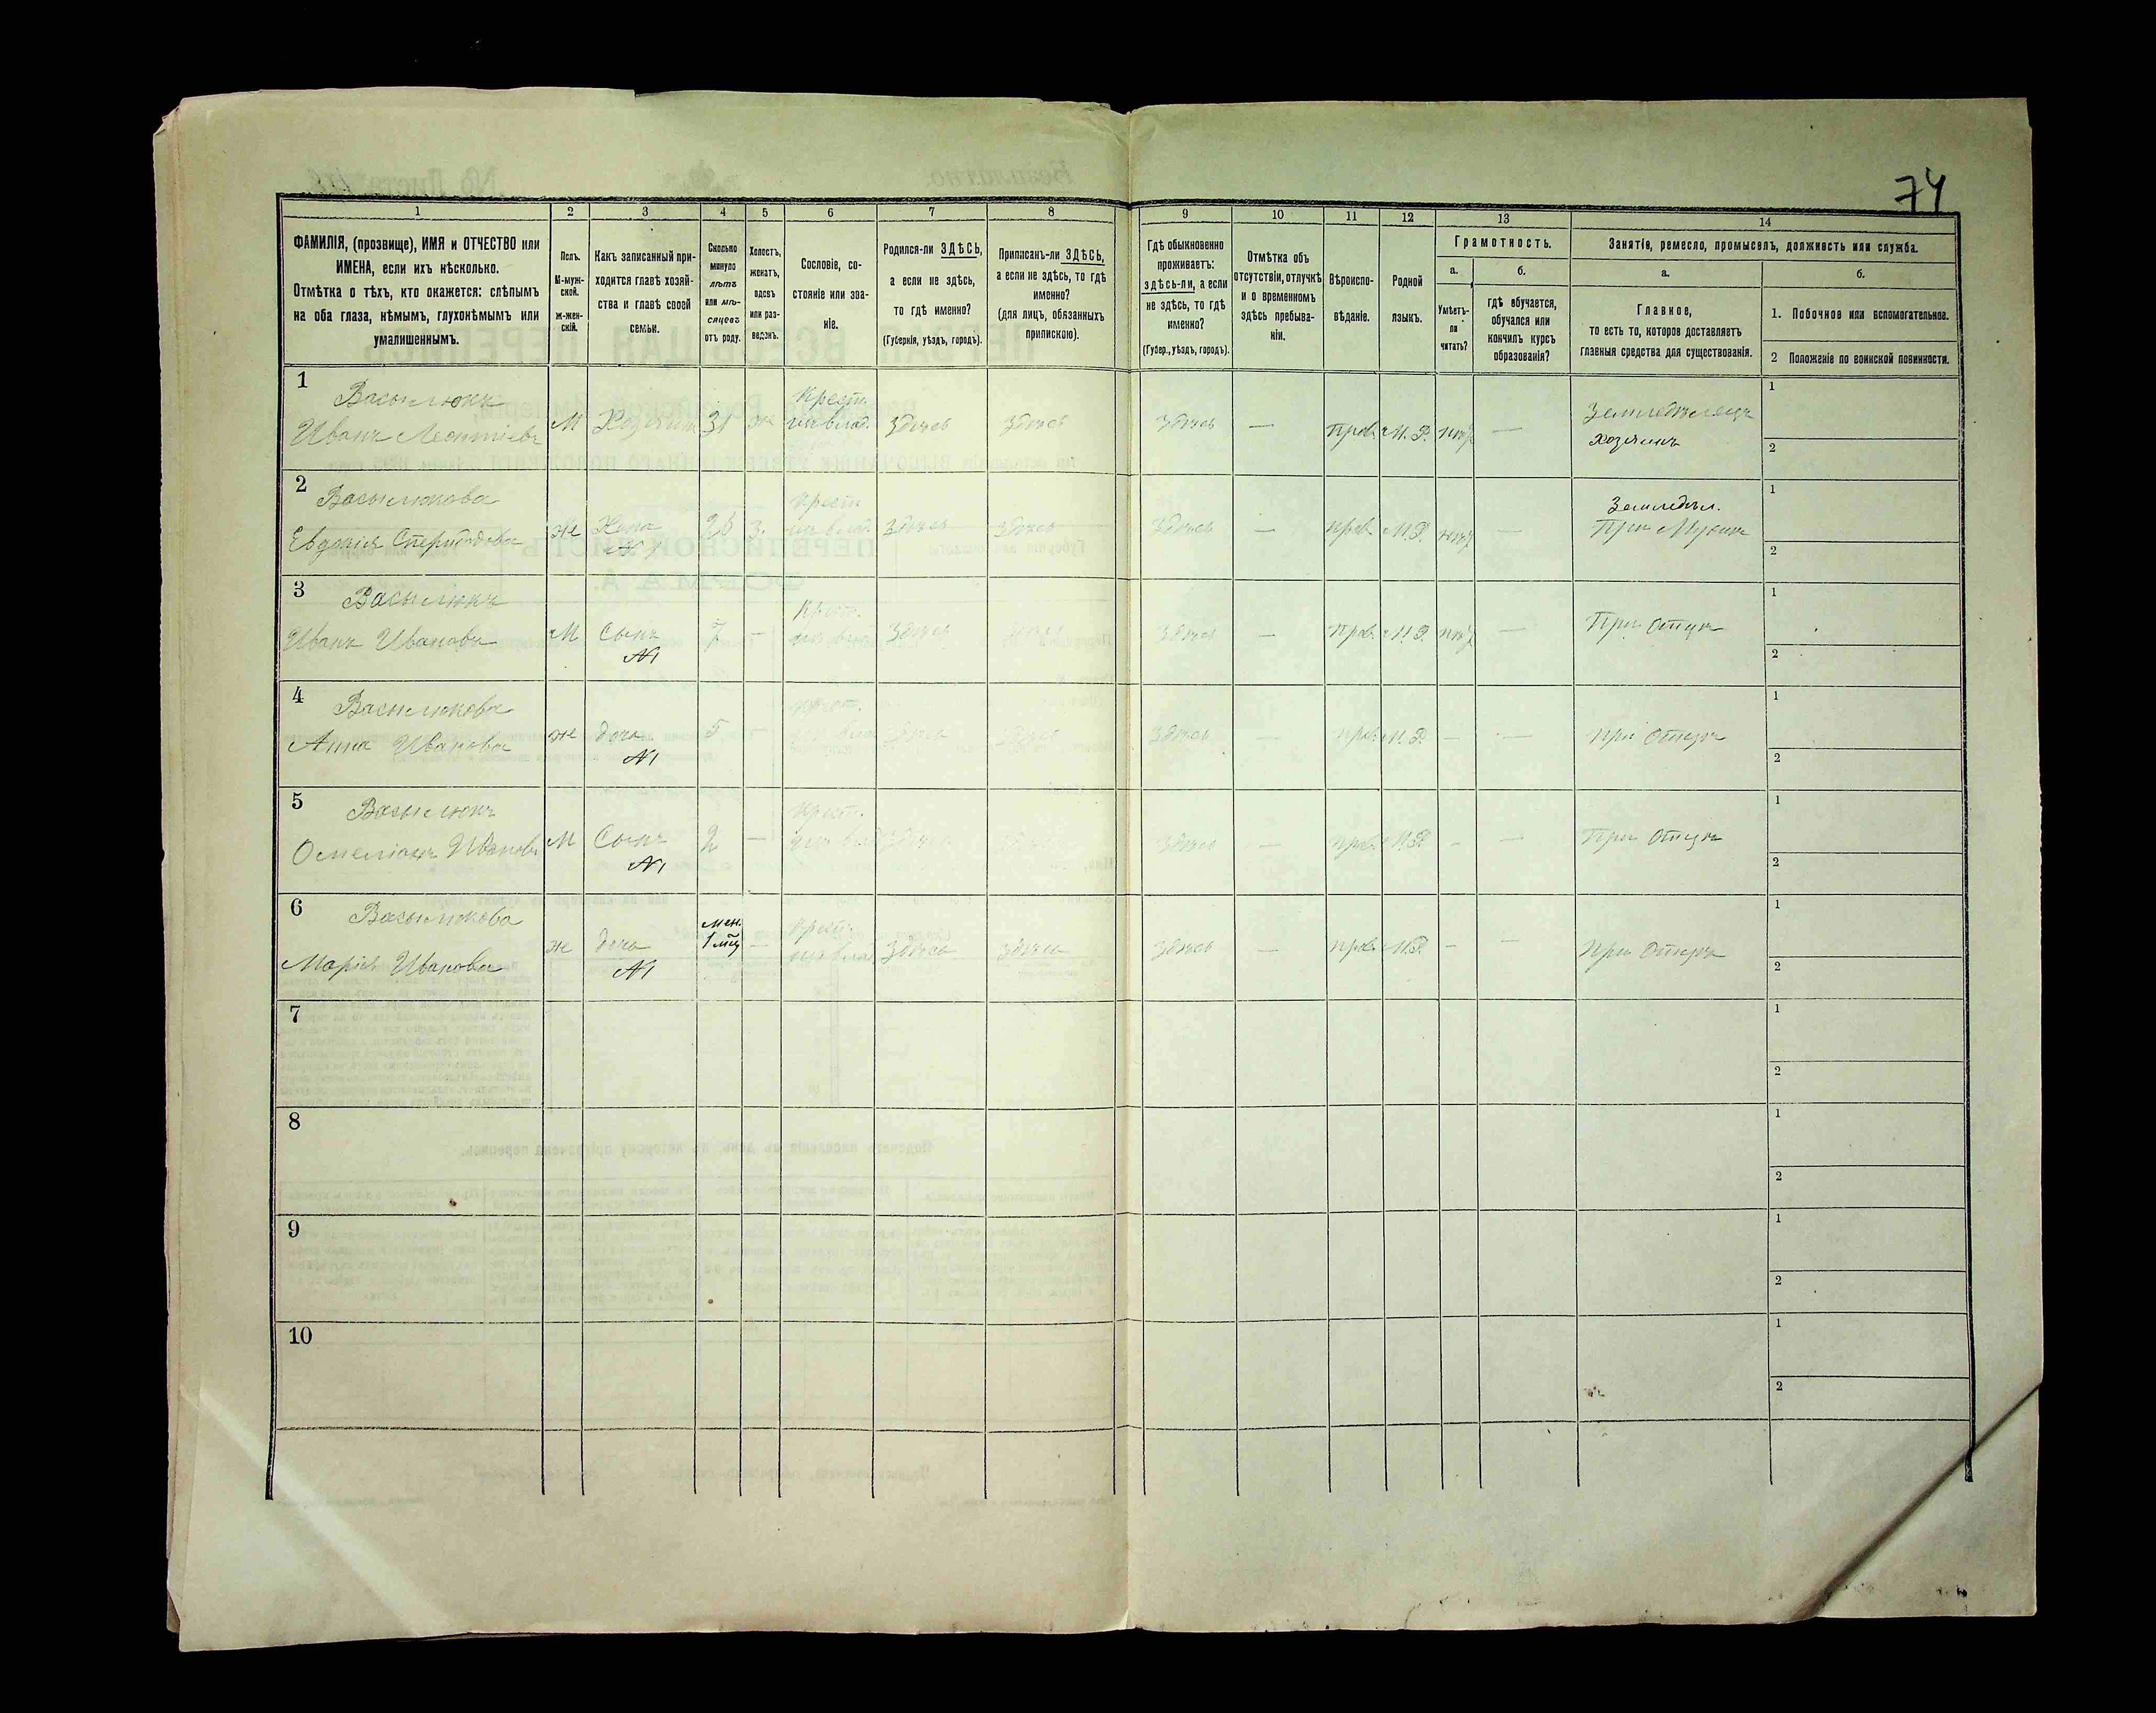 74
1 2 3 4 5 6 7 8 9 10 11 12 13 14
ФАМИЛІЯ, (прозвище), ИМЯ и ОТЧЕСТВО или
ИМЕНА, если ихъ нѣсколько.
Отмѣтка о тѣхъ, кто окажется: слѣпымъ
на оба глаза, нѣмымъ, глухонѣмымъ или
умалишеннымъ.
Полъ.
М-муж-
ской.
ж-жен-
скій.
Какъ записанный при-
ходится главѣ хозяй-
ства и главѣ своей
семьи.
Сколько
минуло
лѣтъ
или мѣ-
сяцевъ
отъ роду.
Холостъ,
женатъ,
вдовъ
или раз-
веденъ.
Сословіе, со-
стояніе или зва-
ніе.
Родился-ли ЗДѢСЬ,
а если не здѣсь,
то гдѣ именно?
(Губернія, уѣздъ, городъ).
Приписанъ-ли ЗДѢСЬ,
а если не здѣсь, то гдѣ
именно?
(для лицъ, обязанныхъ
припискою).
Гдѣ обыкновенно
проживаетъ:
здѣсь-ли, а если
не здѣсь, то гдѣ
именно?
(Губер., уѣздъ, городъ).
Отмѣтка объ
отсутствіи, отлучкѣ
и о временномъ
здѣсь пребыва-
ніи.
Вѣроиспо-
вѣданіе.
Родной
языкъ.
Грамотность.
а.
Умѣетъ-
ли
читать?
б.
гдѣ обучается,
обучался или
кончилъ курсъ
образованія?
Занятіе, ремесло, промыселъ, должность или служба.
а.
Главное,
то есть то, которое доставляетъ
главныя средства для существованія.
б.
1. Побочное или вспомогательное.
2 Положеніе по воинской повинности.
1
Васылюкъ
Иванъ Леонтіевъ
М Хозяинъ 31 ж Крест. Здѣсь Здѣсь Здѣсь — Прав. М.Р. —
Земледѣлецъ
хозяинъ
1
2
2
Васылюкова
Евдокія
же Жена З. Крест. Здѣсь Здѣсь Здѣсь — прав. М.Р. —
№1
Земледѣл.
При Мужѣ
1
2
3
Васылюкъ
Иванъ Ивановъ
М Сынъ 7 — Крест. Здѣсь Здѣсь — прав. М.Р. —
№1
При Отцѣ
1
2
4
Васылюкова
Анна Иванова
же дочь 5 — Крест. Здѣсь — прав. М.Р. — —
№1
при Отцѣ
1
2
5
Васылюкъ
Омеліянъ Ивановъ
М Сынъ 2 — Крест. Здѣсь Здѣсь — прав. М.Р. — —
№1
При Отцѣ
1
2
6
Васылюкова
Марія Иванова
же дочь мен. 1 мѣц — Крест. Здѣсь Здѣсь Здѣсь — прав. М.Р. — —
№1
При Отцѣ
1
2
7
1
2
8
1
2
9
1
2
10
1
2